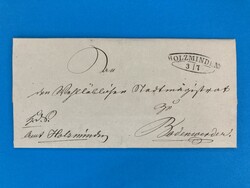 HOLZMINDEN
3/7
Dem
den Wohllöblichen Stadtmagistrat
zu
Bodenwerder
Amt Holzminden